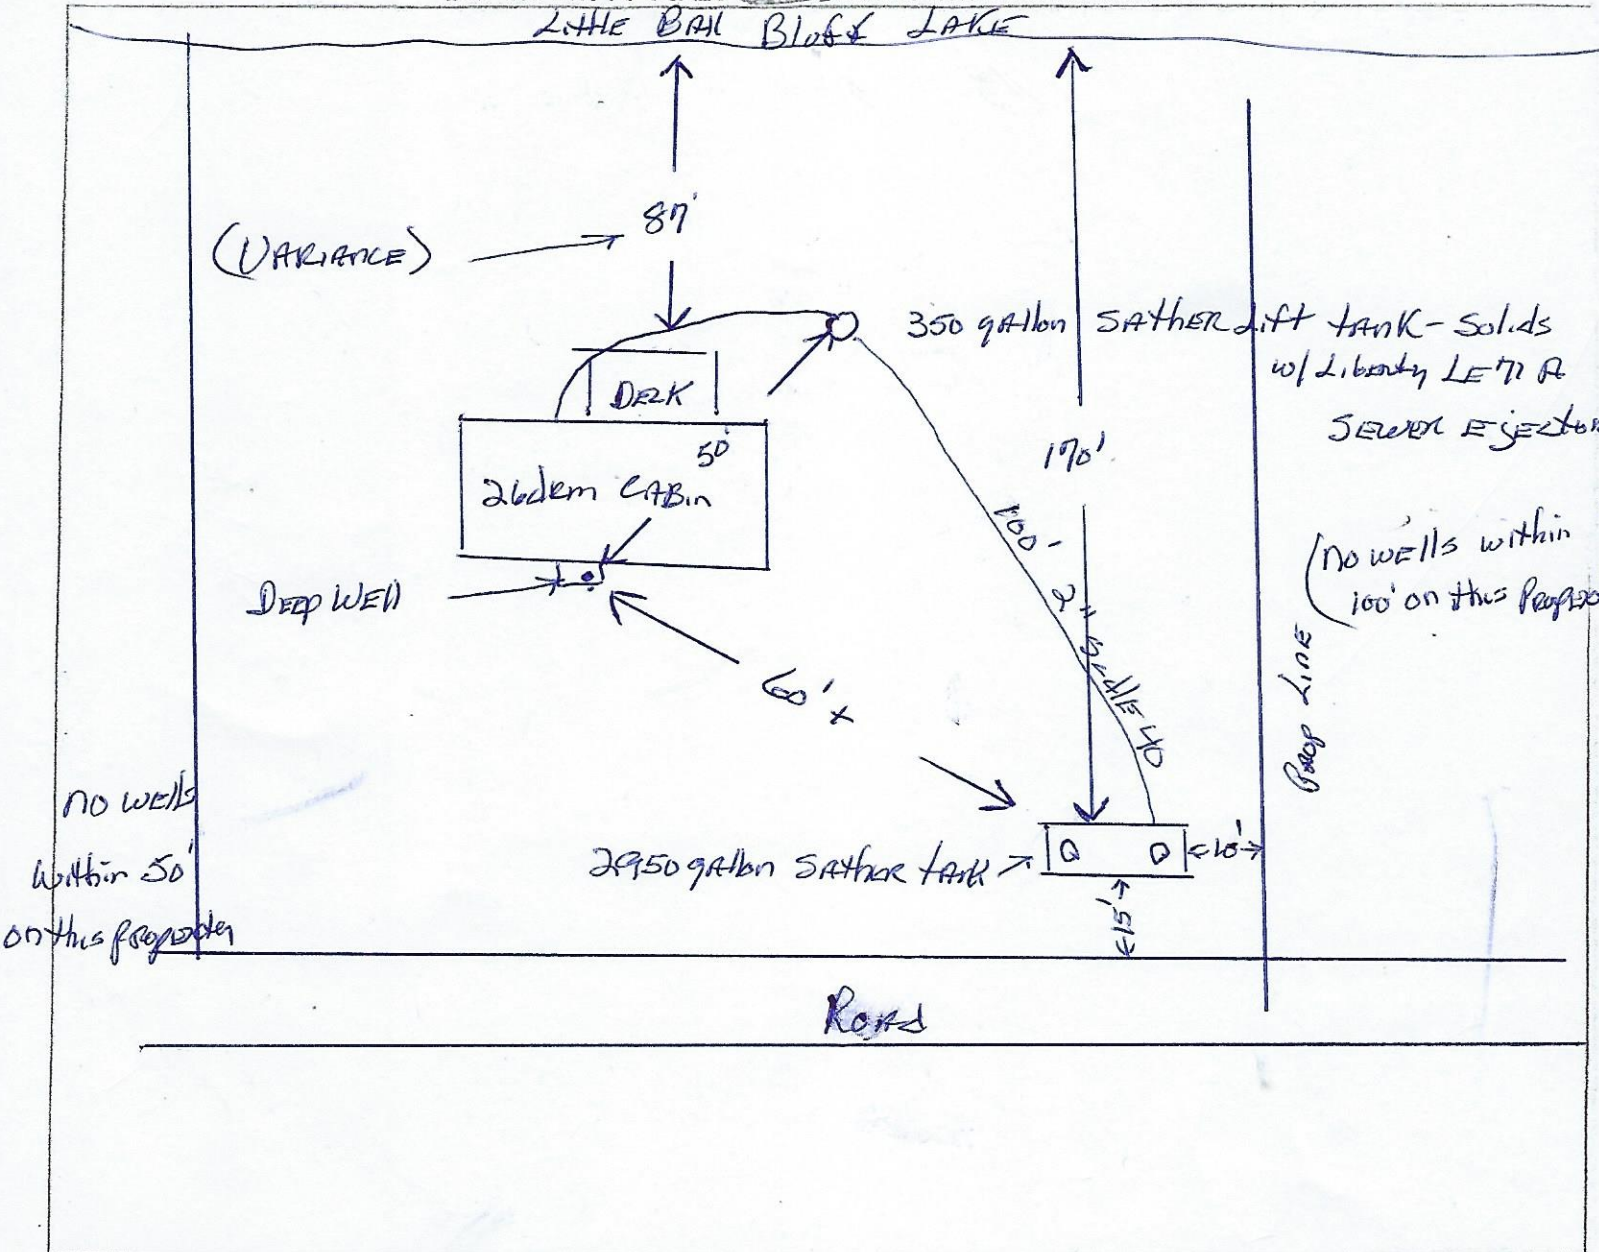 LittlE BAll Bluff LAKE
87'
(VARIANCE)
350 gAllon SAthER Lift tANK - Solids
w/ Liberty LE71 A
SEWER EjEctor
DECK
50'
2 bdrm CABin
170'
100'
2" Schdle 40
(no wElls within
100' on this Prop
DEEp WEll
60' +
PROp LinE
no wElls
within 50'
on this property
2950 gAllon SAthER tAnk
10'
15'
ROAd